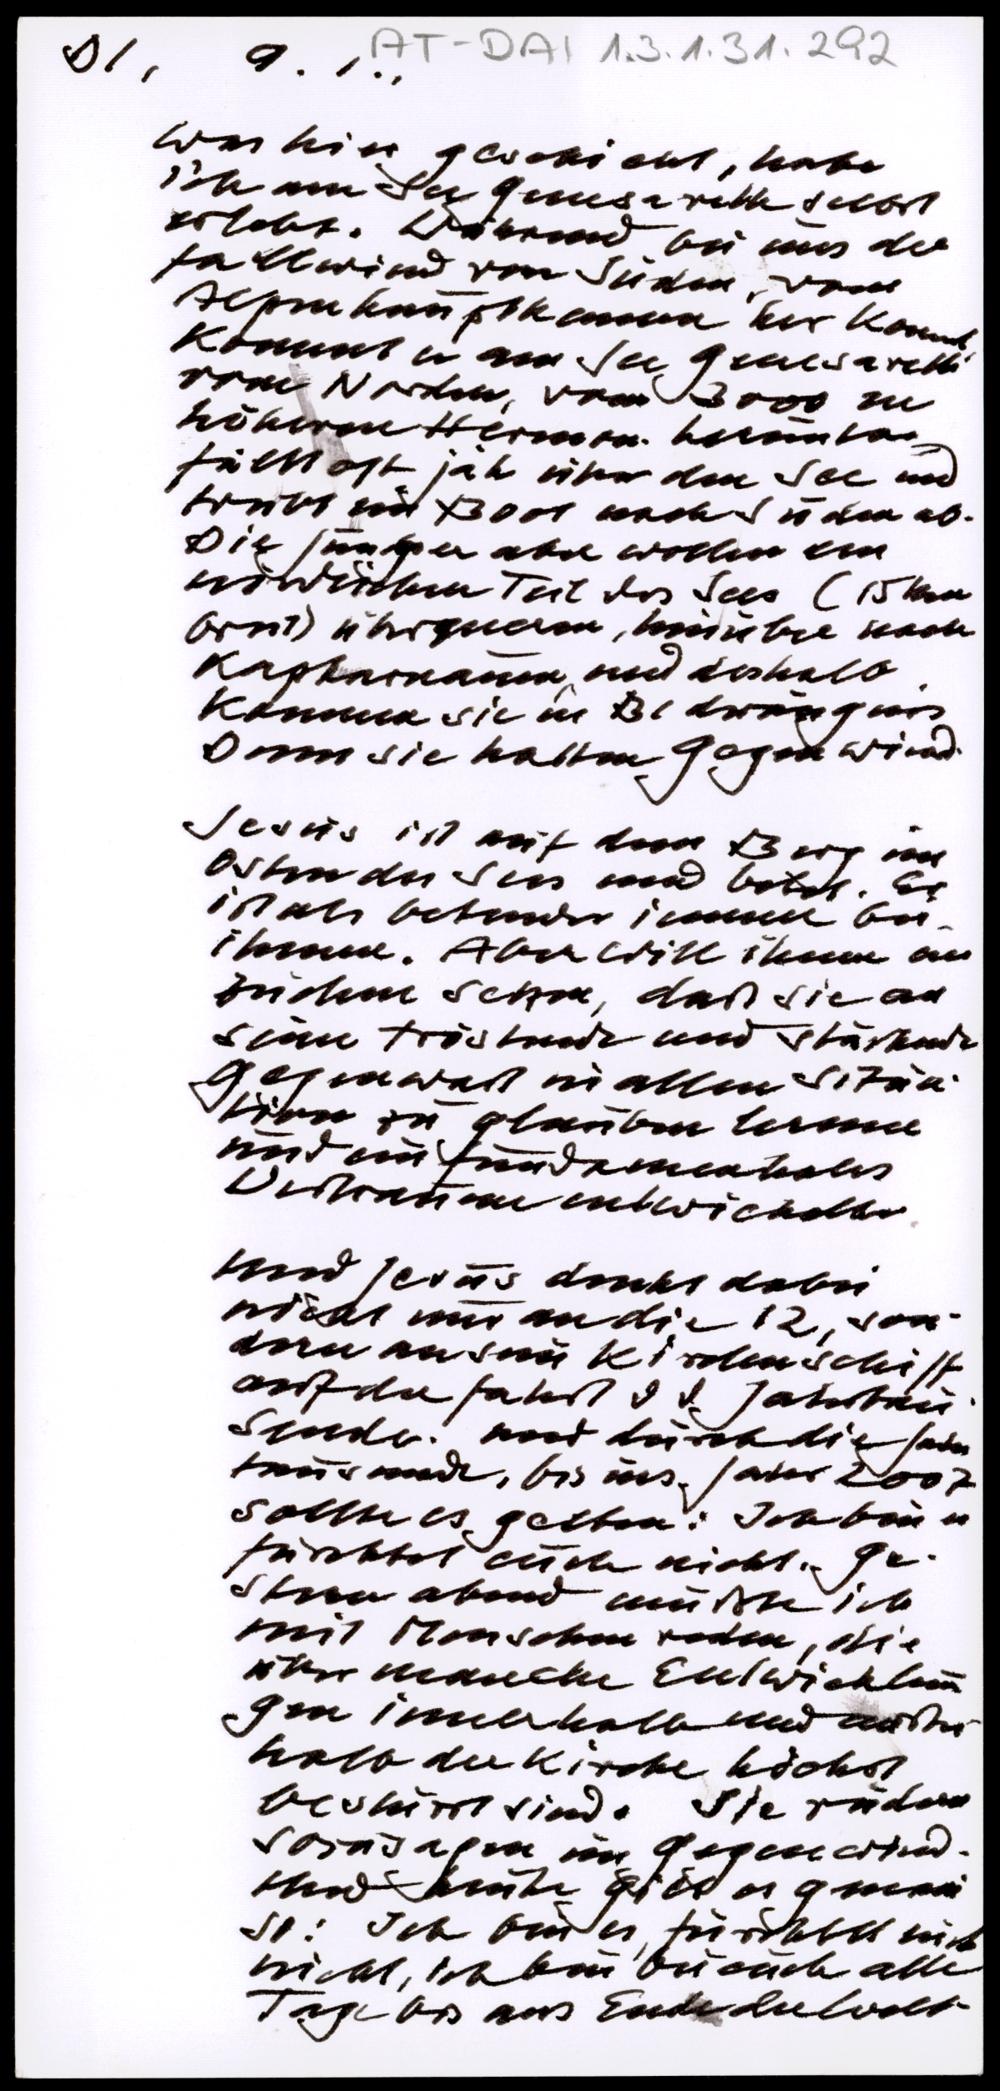 DI, 9. 1.. AT-DAI 1.3.1.31.292
Was hier geschieht, habe
ich am See Genesareth selbst
erlebt. Während bei uns der
Fallwind von Süden, vom
Alpenhauptkamm her kommt,
kommt er am See Genesareth
vom Norden, vom 3000 m
höheren Hermon herunter
fällt oft jäh über den See und
treibt ein Boot nach Süden ab.
Die Jünger aber wollen den
nördlichen Teil des Sees (15 km
breit) überqueren, hinüber nach
Kapharnaum, und deshalb
kommen sie in Bedrängnis
Denn sie hatten Gegenwind.
Jesus ist auf dem Berg im
Osten des Sees und betet. Er
ist als betender immer bei
ihnen. Aber will ihnen ein
Zeichen setzen, daß sie an
seine tröstende und stärkende
Gegenwart in allen Situa-
tion zu glauben lernen
und ein fundamentales
Vertrauen entwickeln
Und Jesus denkt dabei
nicht nur an die 12, son-
dern an sein Kirchenschiff
auf der Fahrt d d Jahrtau-
sende. und durch die Jahr
tausende, bis ins Jahr 2007
sollte es gelten: Ich bin es
fürchtet euch nicht. Ge-
stern abend mußte ich
mit Menschen reden, die
über manche Entwicklun
gen innerhalb und außer
halb der Kirche höchst
bestürzt sind. Sie rudern
sozusagen im Gegenwind.
Und heute gilt es genau
so: Ich bin es, fürchtet euch
nicht, ich bin bei euch alle
Tage bis ans Ende der Welt